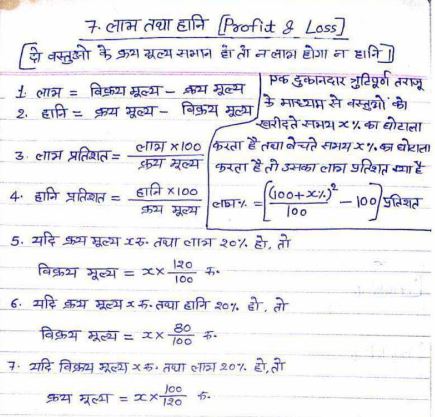 7. लाभ तथा हानि [Profit & Loss]
[दो वस्तुओ के क्रय मूल्य समान हों तो न लाभ होगा न हानि]
1. लाभ = विक्रय मूल्य - क्रय मूल्य
2. हानि = क्रय मूल्य - विक्रय मूल्य
3. लाभ प्रतिशत = लाभ x 100 / क्रय मूल्य
4. हानि प्रतिशत = हानि x 100 / क्रय मूल्य
एक दुकानदार त्रुटिपूर्ण तराजू
के माध्यम से वस्तुओं को
खरीदते समय x % का घोटाला
करता है तथा बेचते समय x % का घोटाला
करता है तो उसका लाभ प्रतिशत क्या है
लाभ% = [(100+x%)² / 100 - 100] प्रतिशत
5. यदि क्रय मूल्य x रु. तथा लाभ 20% हो, तो
विक्रय मूल्य = x x 120/100 रु.
6. यदि क्रय मूल्य x रु. तथा हानि 20% हो, तो
विक्रय मूल्य = x x 80/100 रु.
7. यदि विक्रय मूल्य x रु. तथा लाभ 20% हो, तो
क्रय मूल्य = x x 100/120 रु.